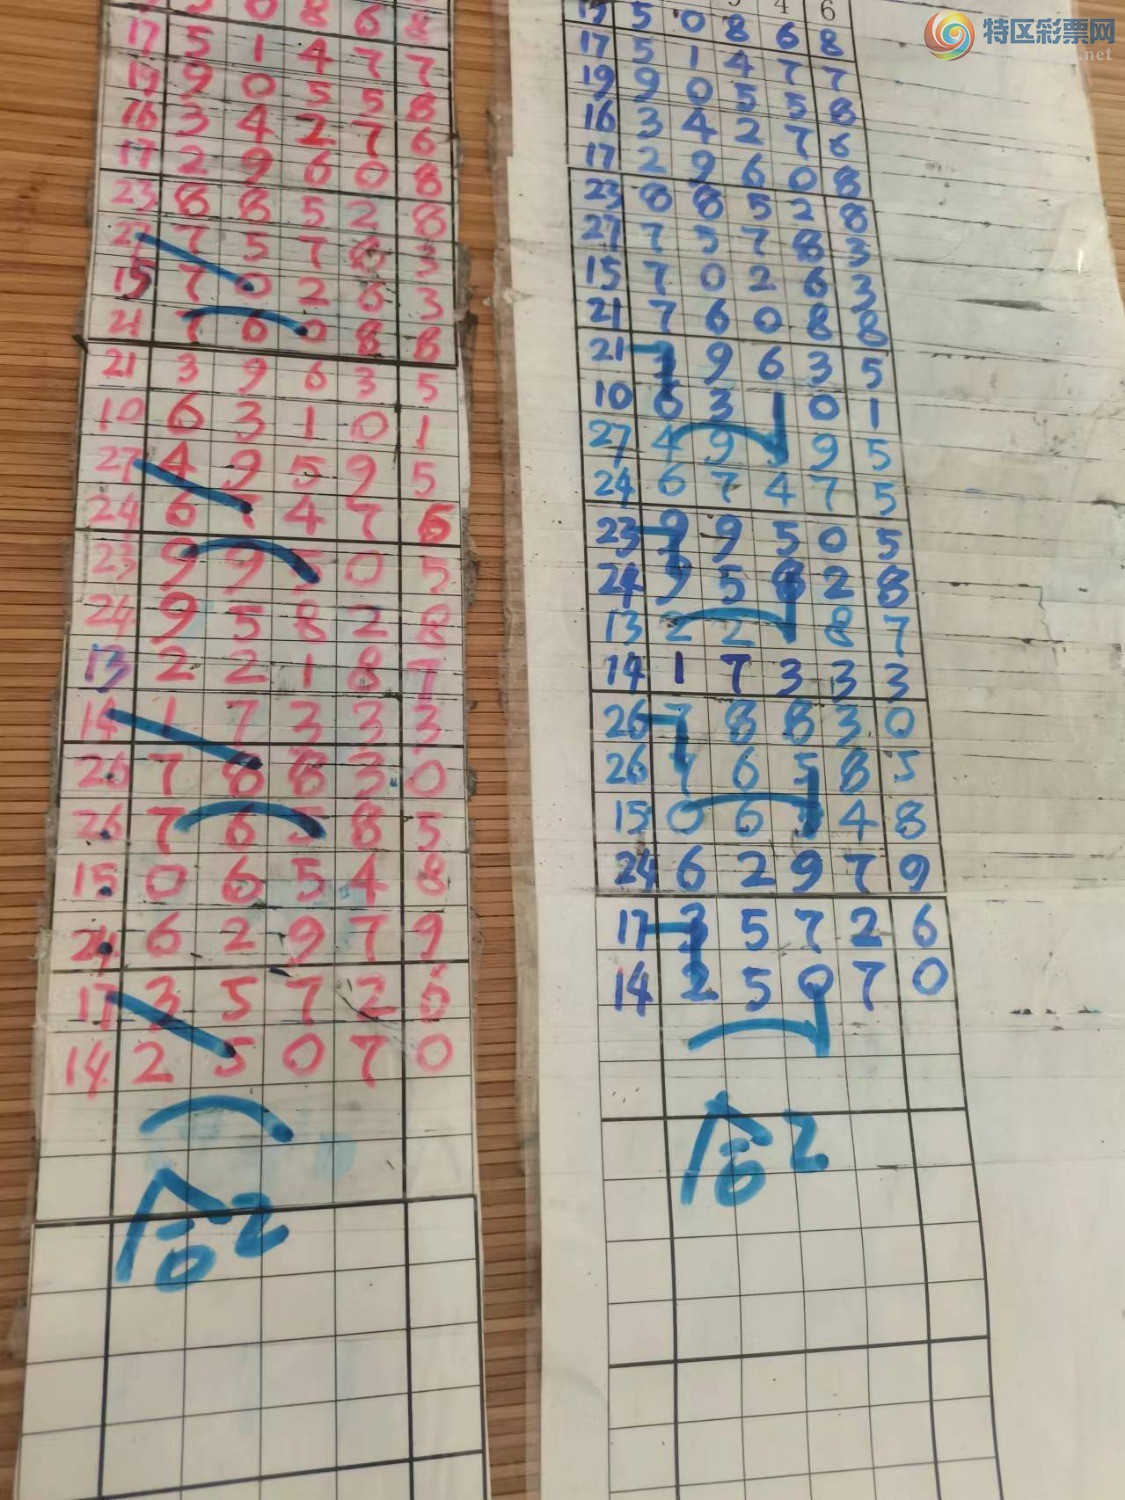 特区彩票网
.net
4 6
0 8 6 8
17 5 1 4 7 7
19 9 0 5 5 8
16 3 4 2 7 6
17 2 9 6 0 8
23 8 8 5 2 8
27 7 5 7 8 3
15 7 0 2 6 3
21 7 6 0 8 8
21 3 9 6 3 5
10 6 3 1 0 1
27 4 9 5 9 5
24 6 7 4 7 5
23 9 9 5 0 5
24 9 5 8 2 8
13 2 2 1 8 7
14 1 7 3 3 3
26 7 8 8 3 0
26 7 6 5 8 5
15 0 6 5 4 8
24 6 2 9 7 9
17 3 5 7 2 6
14 2 5 0 7 0
合2
17 5 0 8 6 8
17 5 1 4 7 7
19 9 0 5 5 8
16 3 4 2 7 6
17 2 9 6 0 8
23 8 8 5 2 8
27 7 5 7 8 3
15 7 0 2 6 3
21 7 6 0 8 8
21 3 9 6 3 5
10 6 3 1 0 1
27 4 9 5 9 5
24 6 7 4 7 5
23 9 9 5 0 5
24 9 5 8 2 8
13 2 2 1 8 7
14 1 7 3 3 3
26 7 8 8 3 0
26 7 6 5 8 5
15 0 6 5 4 8
24 6 2 9 7 9
17 3 5 7 2 6
14 2 5 0 7 0
合2